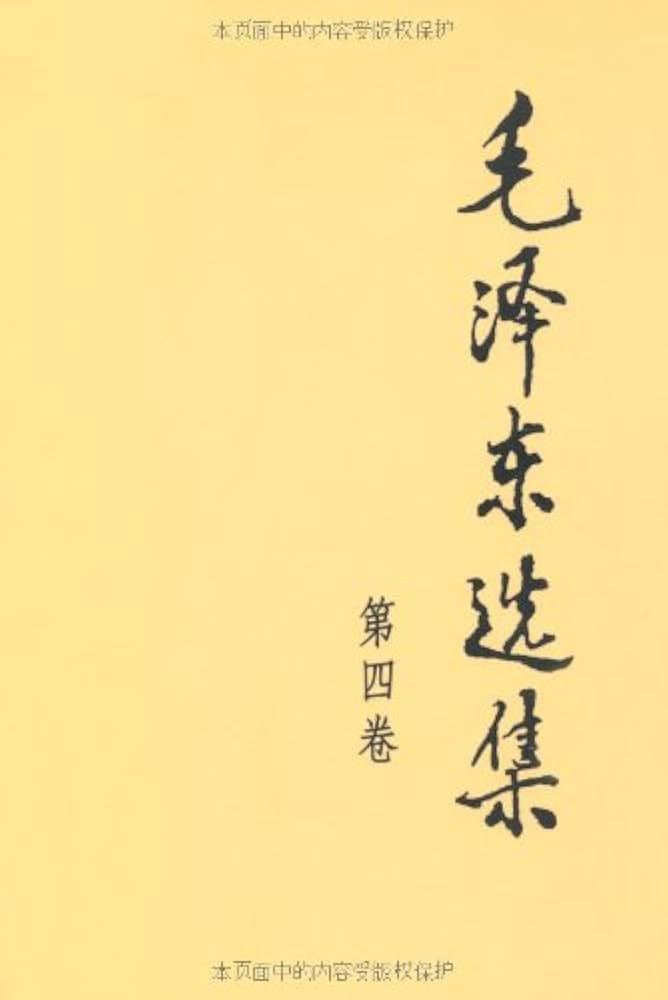 本页面中的内容受版权保护
毛泽东选集
第四卷
本页面中的内容受版权保护